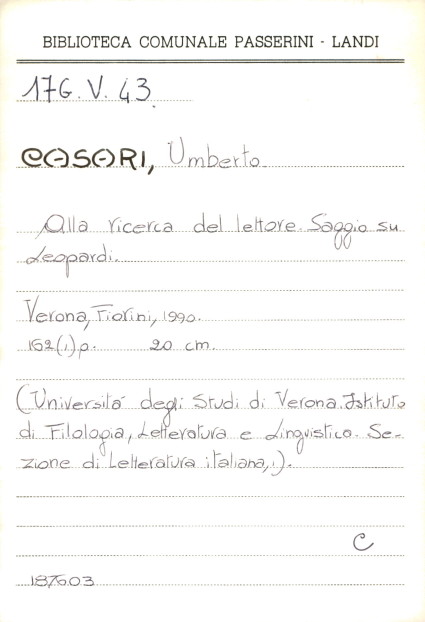 BIBLIOTECA COMUNALE PASSERINI - LANDI
17G. V. 43.
CASARI, Umberto
Alla ricerca del lettore. Saggio su
Leopardi.
Verona, Fiorini, 1990.
162(1)p. 20 cm.
(Università degli Studi di Verona. Istituto
di Filologia, Letteratura e Linguistica. Se-
zione di Letteratura italiana, 1).
C
187603